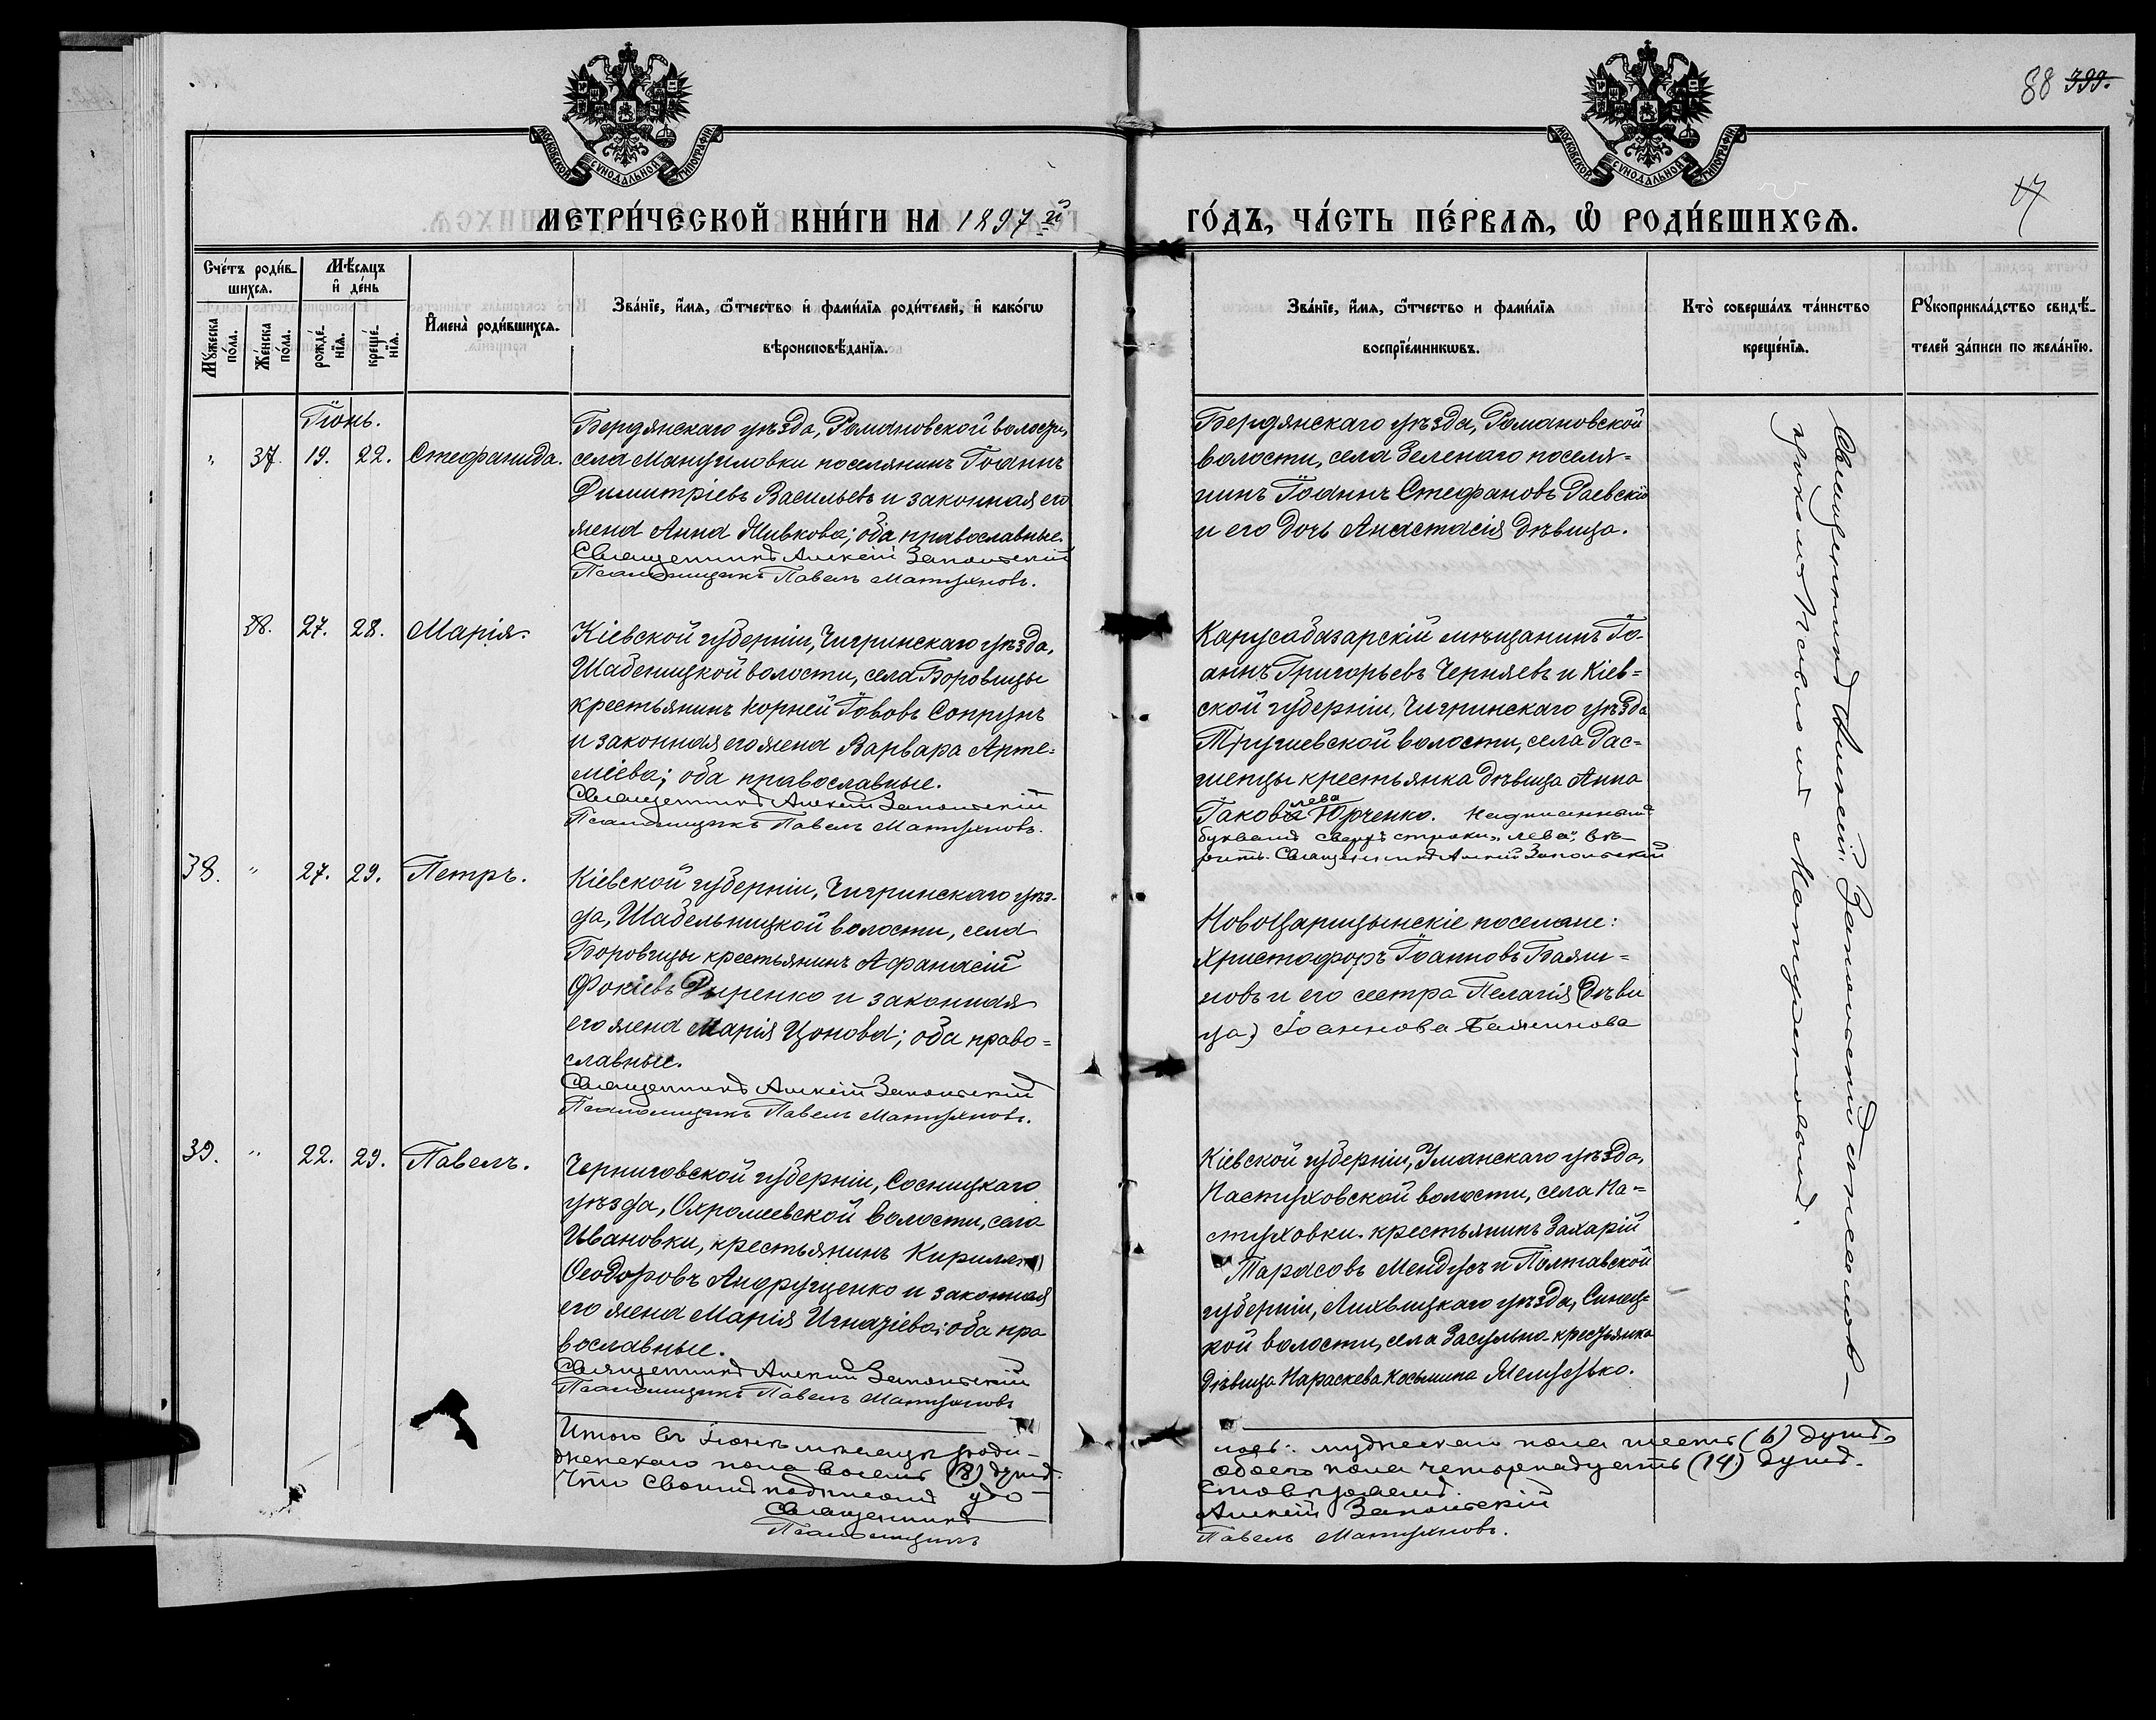 88 399.
17
МОСКОВСКОЙ СУНОДАЛЬНОЙ ТИПОГРАФІИ
МОСКОВСКОЙ СУНОДАЛЬНОЙ ТИПОГРАФІИ
МЕТРИ́ЧЕСКОЙ КНИ́ГИ НА 1897-й ГО́ДЪ, ЧА́СТЬ ПЕ́РВАѦ, Ѡ҆ РОДИ́ВШИХСѦ.
Сче́тъ роди́в-
шихсѧ.
Мꙋ́жеска
по́ла.
Же́нска
по́ла.
Мѣ́сѧцъ
и҆ де́нь
рожде́-
нїѧ.
креще́-
нїѧ.
И҆мена̀ роди́вшихсѧ.
Зва́нїе, и҆́мѧ, ѻ҆́тчество и҆ фами́лїѧ роди́телей, и҆ како́гѡ
вѣроисповѣ́данїѧ.
Зва́нїе, и҆́мѧ, ѻ҆́тчество и фами́лїѧ
воспрїе́мникѡвъ.
Кто̀ соверша́лъ та́инство
креще́нїѧ.
Рꙋкоприкла́дство свидѣ́-
телей за́писи по жела́нїю.
Іюнь.
" 37. 19. 22. Стефанида.
Бердянскаго уѣзда, Романовской волости,
села Мануиловки поселянинъ Іоаннъ
Димитріевъ Васильевъ и законная его
жена Анна Живкова; оба православные.
Священникъ Алексій Запольскій
Псаломщикъ Павелъ Матухновъ.
Бердянскаго уѣзда, Романовской
волости, села Зеленаго поселя=
нинъ Іоаннъ Стефановъ Раевскій
и его дочь Анастасія дѣвица.
38. 27. 28. Марія.
Кіевской губерніи, Чигринскаго уѣзда,
Шабеницкой волости, села Боровицы
крестьянинъ Корней Іововъ Сопрунъ
и законная его жена Варвара Арте=
міева; оба православные.
Священникъ Алексій Запольскій
Псаломщикъ Павелъ Матухновъ.
Карусабазарскій мѣщанинъ Іо-
аннъ Григорьевъ Черняевъ и Кіев=
ской губерніи, Чигринскаго уѣзда
волости, села Рас=
шепцы крестьянка дѣвица Анна
лева
Іакова Юрченко. Надписаннымъ
буквамъ сверхъ строки "лева", вѣ-
рить. Священникъ Алексій Запольскій
38. " 27. 29. Петръ.
Кіевской губерніи, Чигринскаго уѣз-
да, Шабельницкой волости, села
Боровицы крестьянинъ Афанасій
Фокіевъ Дыренко и законная
его жена Марія Цонова; оба право=
славные.
Священникъ Алексій Запольскій
Псаломщикъ Павелъ Матухновъ.
Новоцарицынскіе поселяне:
Христофоръ Іоанновъ Баяли=
новъ и его сестра Пелагія (дѣви
ца) Іоаннова
39. " 22. 29. Павелъ.
Черниговской губерніи, Сосницкаго
уѣзда, Охрамеевской волости, села
Ивановки, крестьянинъ Кириллъ
Ѳеодоровъ Андрущенко и законная
его жена Марія Игнатіева; оба пра
вославные.
Священникъ Алексій Запольскій
Псаломщикъ Павелъ Матухновъ
Кіевской губерніи, Уманскаго уѣзда,
Пастуховской волости, села Па=
стуховки. крестьянинъ Захарій
Тарасовъ Мендусъ и Полтавской
губерніи, Лихвицкаго уѣзда, Синец-
кой волости, села Засулья крестьянка
дѣвица Параскева Косьмина
Священникъ Алексій Запольскій съ псалом-
щикомъ Павломъ Матухновымъ.
Итого въ Іюнѣ мѣсяцѣ роди-
лось: мужескаго пола шесть (6) душъ,
женскаго пола восемь (8) душъ.
обоего пола четырнадцать (14) душъ.
Что своимъ подписомъ удо-
стовѣряемъ.
Священникъ Алексій Запольскій
Псаломщикъ Павелъ Матухновъ.